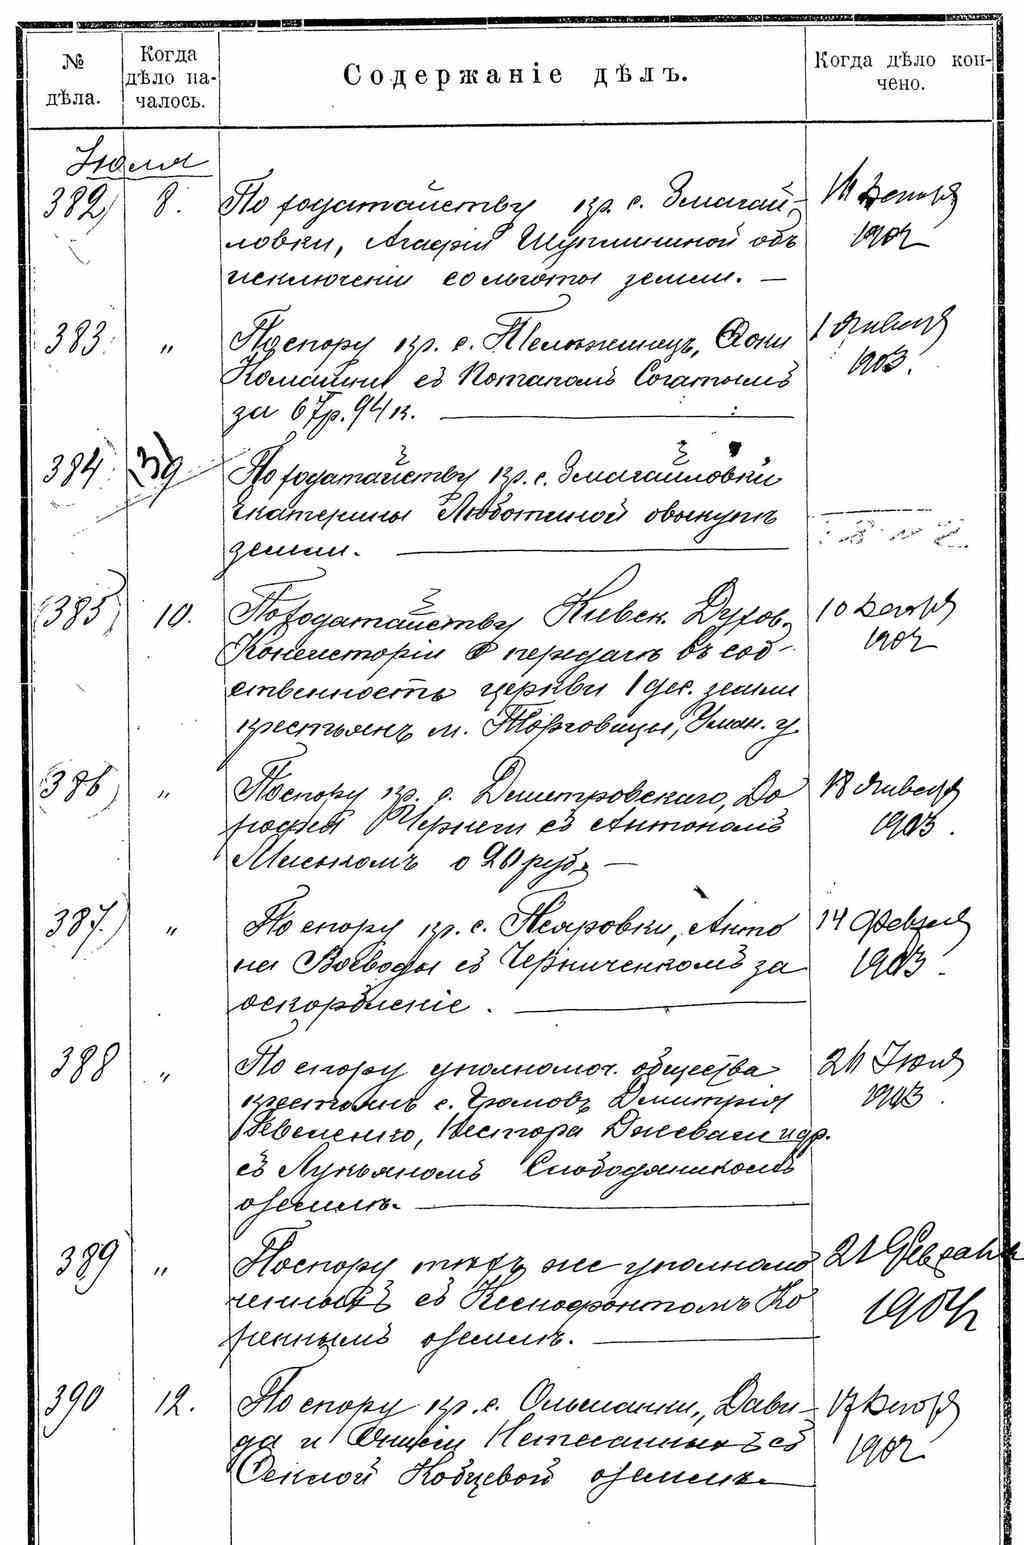 № дѣла.
Когда дѣло на-
чалось.
Содержаніе дѣлъ.
Когда дѣло кон-
чено.
Іюля
382) 8. По ходатайству кр. с. Змагай-
ловки, Агафіи Шуплишной объ
исключеніи со льготы земли. —
Декабря
1902
383. „ По спору кр. с. Тельжинецъ,
съ Потапомъ Согатымъ
за 67р. 94 к.
1 Января
1903.
384 9 По ходатайству кр. с. Змагайловки
Екатерины Люботиной о выкупѣ
земли.
385) 10. По ходатайству Кіевск. Духов.
Консисторіи о передачѣ въ соб-
ственность церкви 1 дес. земли
крестьянъ м. Торговицы, Уман. у.
10 Декабря
1902
386) „ По спору кр. с. Дмитровскаго, До
рофея Чернеги съ Антономъ
о 20 руб. —
18 Января
1903.
387.) „ По спору кр. с. Псяровки, Анто
на Воеводы съ Черниченкомъ за
оскорбленіе.
14 Февраля
1903.
388 „ По спору уполномоч. общества
крестьянъ с. Громовъ Дмитрія
Евсеенко, Нестора и др.
съ Лукьяномъ Слободяникомъ
о землѣ.
Іюля
1903.
389 „ По спору тѣхъ же уполномо
ченныхъ съ Ксенофонтомъ Ко
реннымъ о землѣ.
21 Февраля
1904
390 12. По спору кр. с. Ольшанки, Дави-
да и Онисіи Нетесанныхъ съ
Феклой Кобцевой о землѣ.
17 Декабря
1902